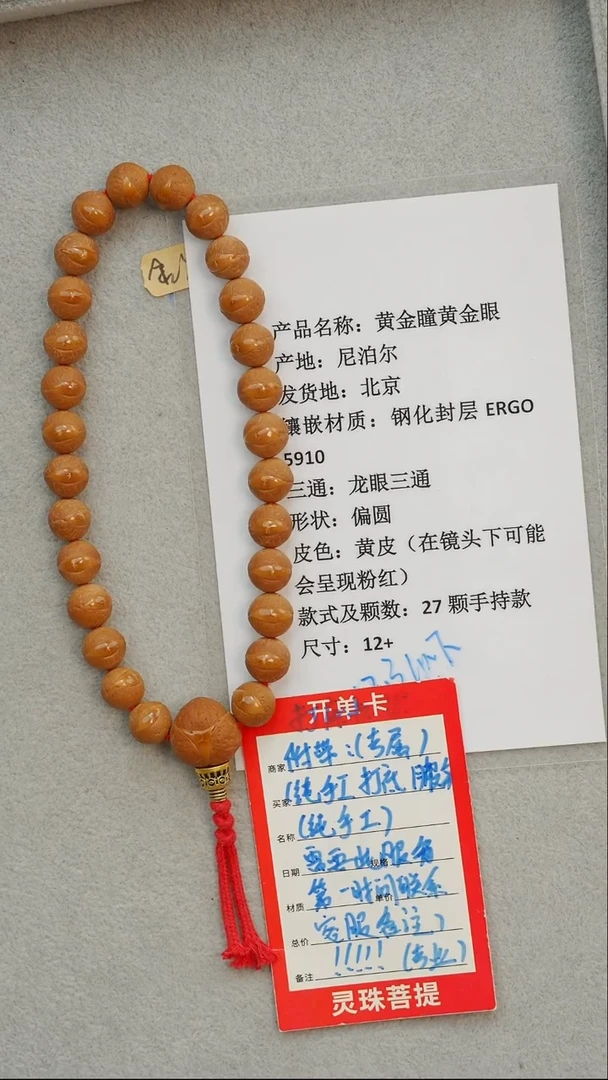 产品名称：黄金瞳黄金眼
产地：尼泊尔
发货地：北京
镶嵌材质：钢化封层 ERGO
5910
三通：龙眼三通
形状：偏圆
皮色：黄皮（在镜头下可能
会呈现粉红）
款式及颗数：27 颗手持款
尺寸：12+
开单卡
商家 附盘：(专属)
买家 (纯手工 打底
名称 (纯手工)
日期 需要此服务 规格
材质 第一时间联系 单价
总价 客服备注)
备注 !!!!! (专业)
灵珠菩提